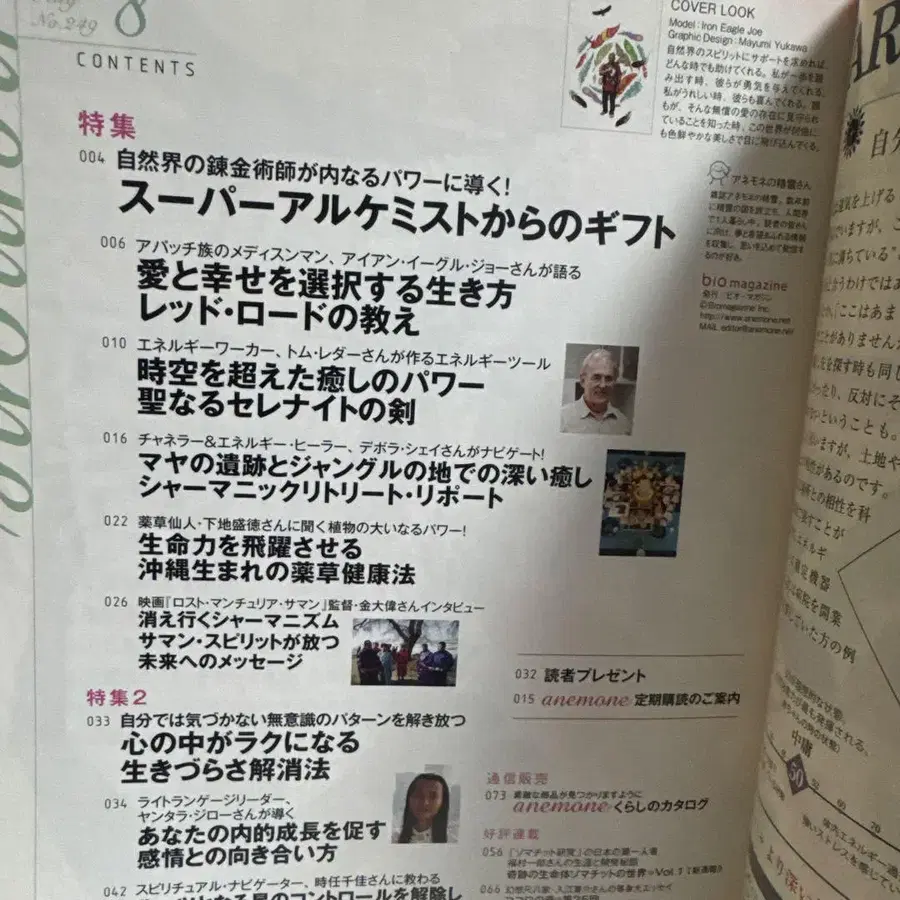 No.249
8
CONTENTS
特集
004 自然界の錬金術師が内なるパワーに導く!
スーパーアルケミストからのギフト
006 アパッチ族のメディスンマン、アイアン・イーグル・ジョーさんが語る
愛と幸せを選択する生き方
レッド・ロードの教え
010 エネルギーワーカー、トム・レダーさんが作るエネルギーツール
時空を超えた癒しのパワー
聖なるセレナイトの剣
016 チャネラー&エネルギー・ヒーラー、デボラ・シェイさんがナビゲート!
マヤの遺跡とジャングルの地での深い癒し
シャーマニックリトリート・リポート
022 薬草仙人・下地盛徳さんに聞く植物の大いなるパワー!
生命力を飛躍させる
沖縄生まれの薬草健康法
026 映画『ロスト・マンチュリア・サマン』監督・金大偉さんインタビュー
消え行くシャーマニズム
サマン・スピリットが放つ
未来へのメッセージ
特集2
033 自分では気づかない無意識のパターンを解き放つ
心の中がラクになる
生きづらさ解消法
034 ライトランゲージリーダー、
ヤンタラ・ジローさんが導く
あなたの内的成長を促す
感情との向き合い方
042 スピリチュアル・ナビゲーター、時任千佳さんに教わる
COVER LOOK
Model:Iron Eagle Joe
Graphic Design:Mayumi Yukawa
自然界のスピリットにサポートを求めれば、
どんな時でも助けてくれる。私が一歩を踏
み出す時、彼らが勇気を与えてくれる。
私がうれしい時、彼らも喜んでくれる。誰
もが、そんな無償の愛の存在に見守られ
ていることを知った時、この世界が
も色鮮やかな美しさで目に飛び込んでくる。
アネモネの精霊さん
bio magazine
発行/ビオ・マガジン
©Biomagazine Inc.
http://www.anemone.net
MAIL editor@anemone.net
032 読者プレゼント
015 anemone 定期購読のご案内
通信販売
073 素敵な商品が見つかりますように
anemone くらしのカタログ
好評連載
056 『ソマチット研究』の日本の第一人者
福村一郎さんの生涯と開発秘話
奇跡の生命体ソマチットの世界 Vol.1
066
自分
中庸
50
60
70